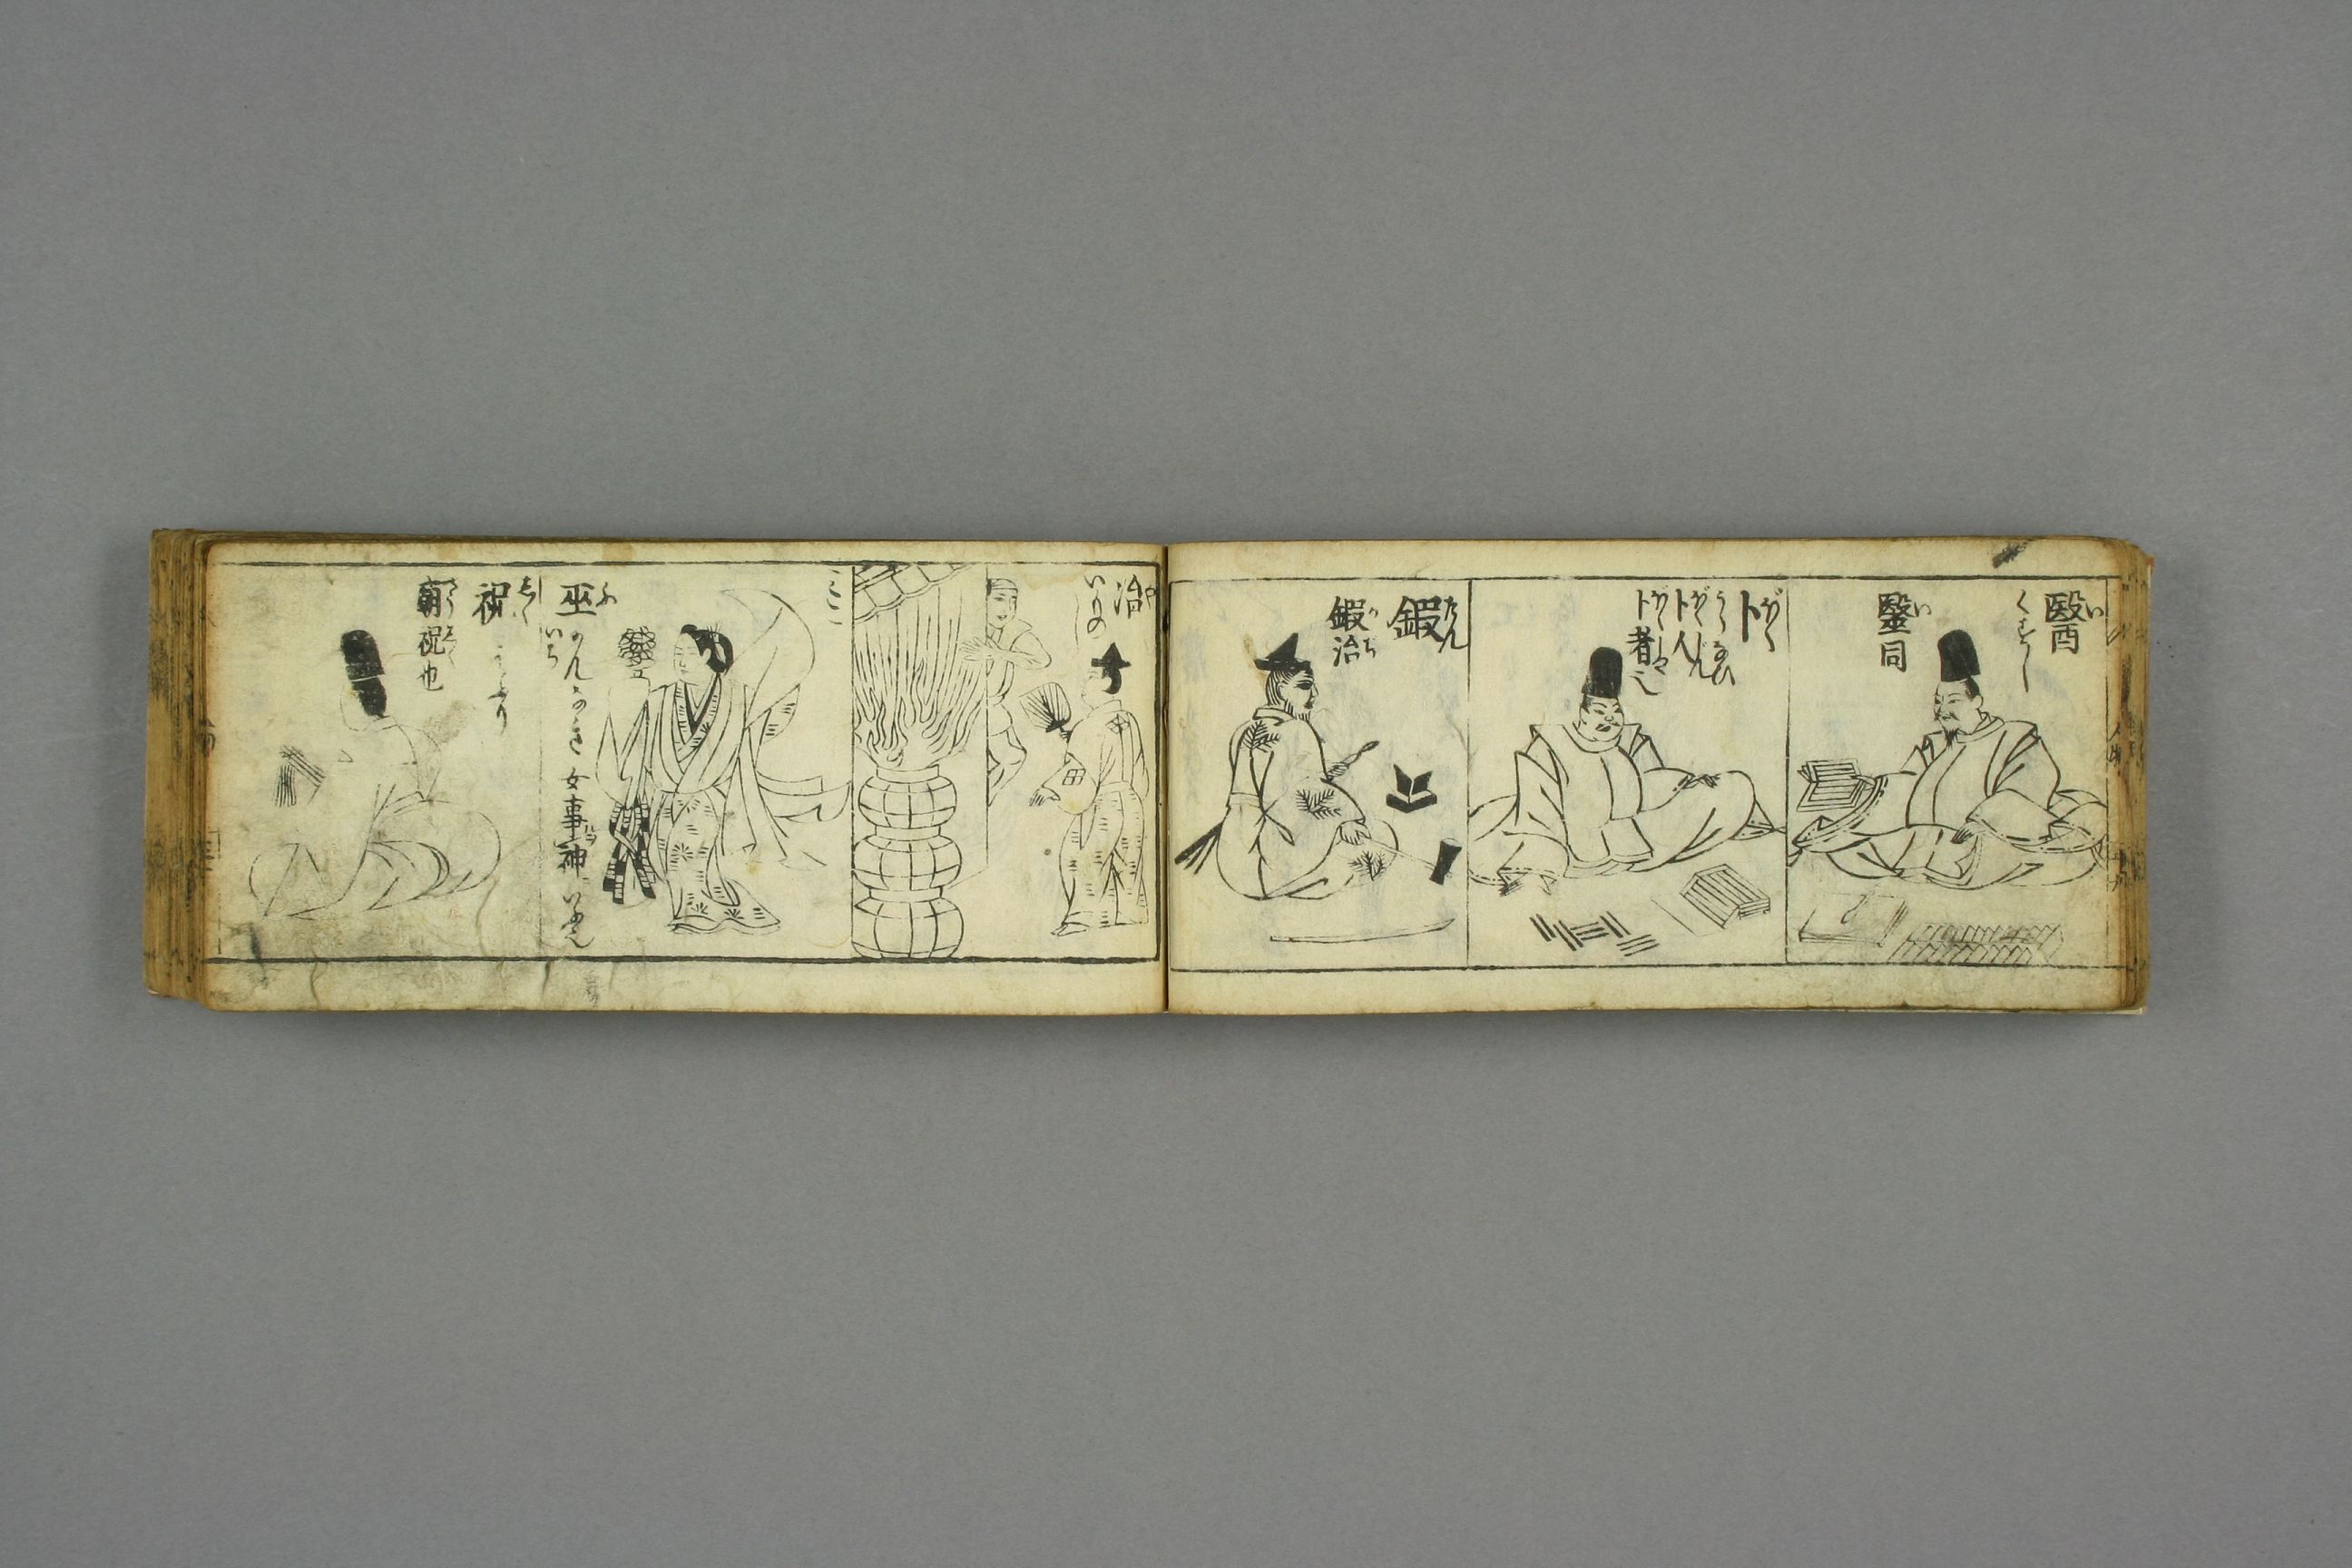 醫 い
くすし
毉 い 同
卜 ぼく
うらなひ
卜人 ぼくじん
卜者 ぼくしや
鍜 たん
鍜治 かぢ
冶 や
いもの
し
巫 ふ
かんなぎ 女事神
いち
祝 しく
はふり
廟祝也